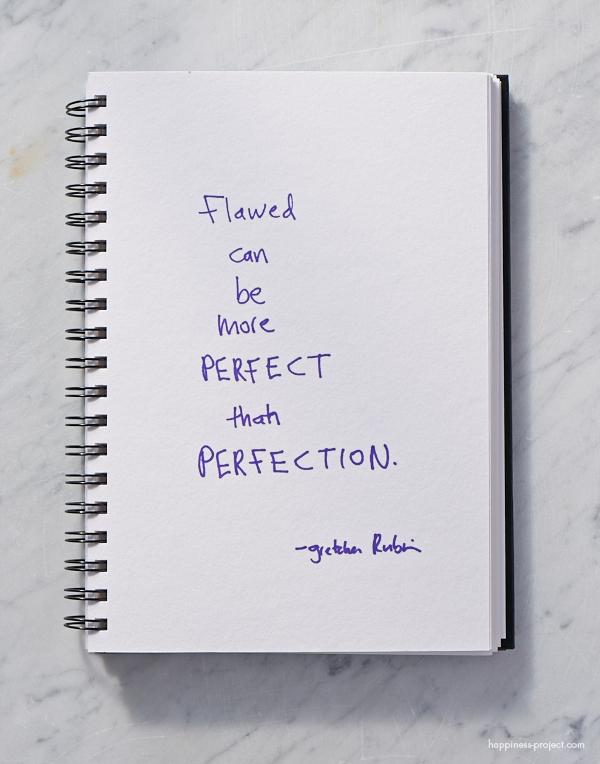 Flawed
can
be
more
PERFECT
than
PERFECTION.
-gretchen Rubin
happiness-project.com